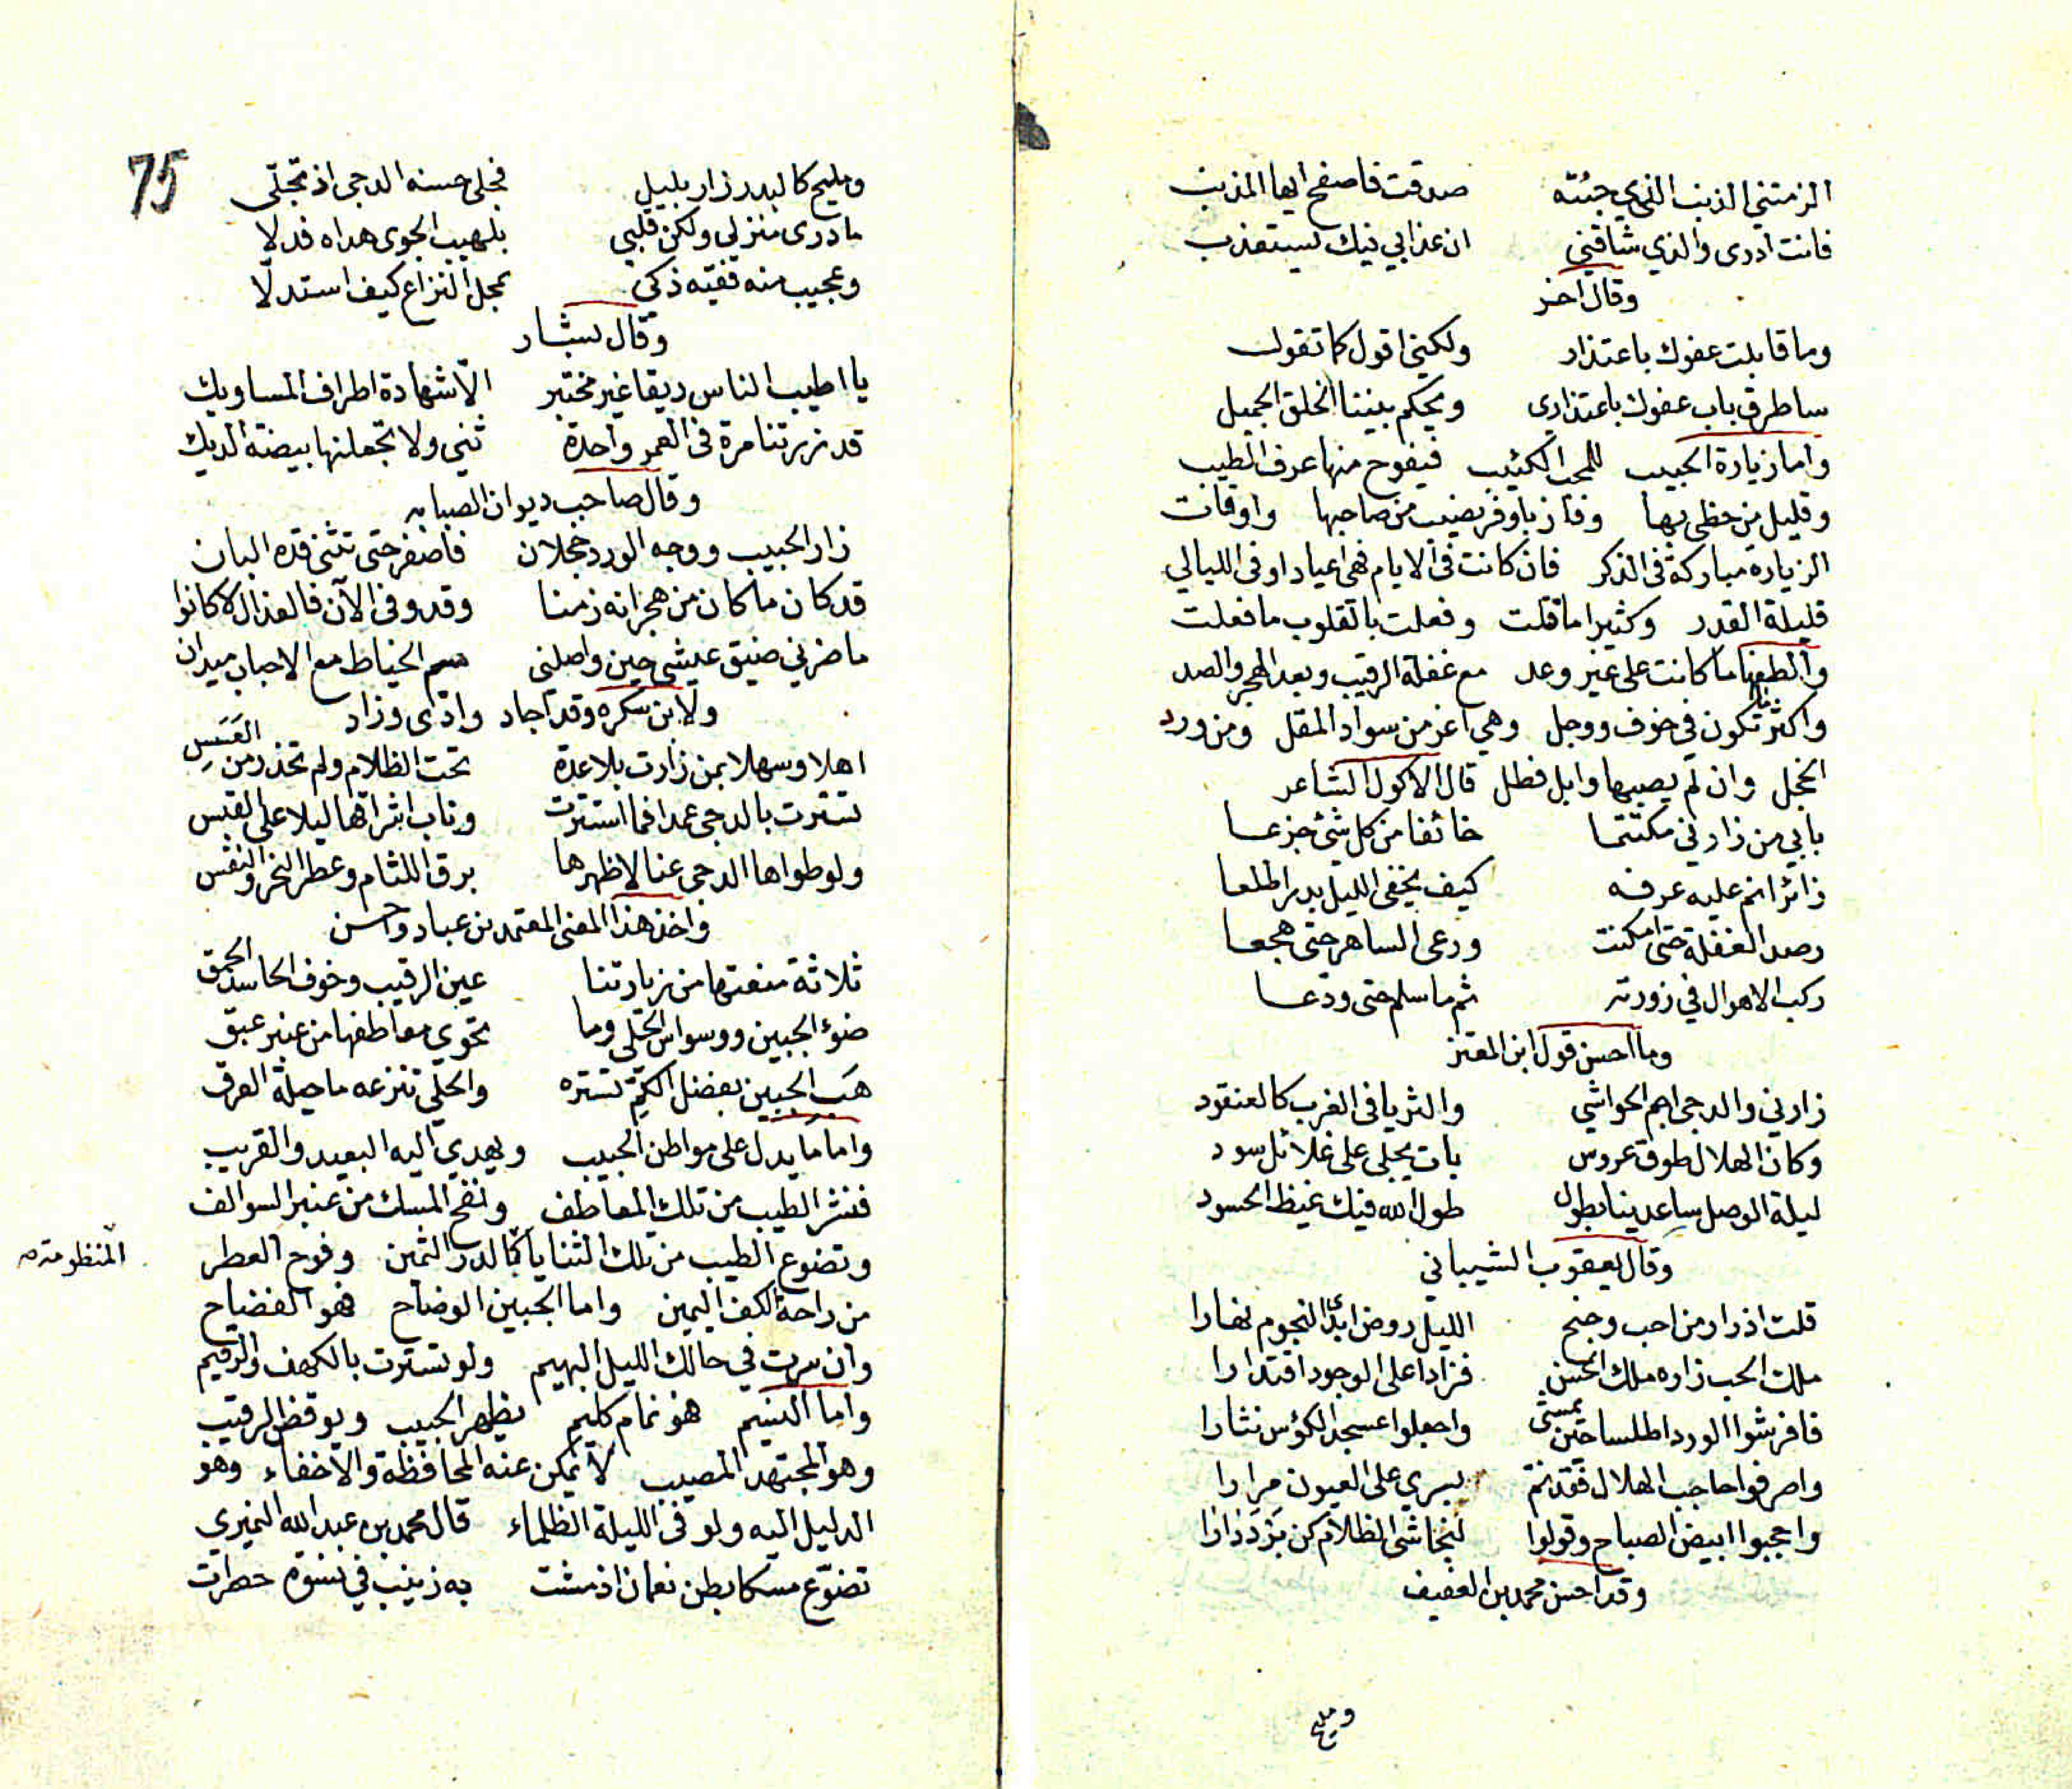 الزمتني الذنب الذي جئته صدقت فاصفح ايها المذنب
فانت ادرى والذي شاقني ان عذابي فيك يستعذب
وقال اخر
وما قابلت عفوك باعتذار ولكني اقول كما تقول
ساطرق باب عفوك باعتذاري ويحكم بيننا الخلق الجميل
واما زيارة الحبيب للمحب الكئيب فيفوح منها عرف الطيب
وقليل من حظي بها وفاز باوفر نصيب من صاحبها واوقات
الزيارة مباركة في الذكر فان كانت في الايام فهي اعياد او في الليالي
قليلة القدر وكثيرا ما قلت وفعلت بالقلوب ما فعلت
والطفها ما كانت على غير وعد مع غفلة الرقيب وبعد الهجر والصد
واكثر ما تكون في خوف ووجل وهي اعز من سواد المقل ومن ورد
الخجل وان لم يصبها وابل فطل قال الاكول الشاعر
بابي من زارني مكتتما خائفا من كل شئ جزعا
زائرا نم عليه عرفه كيف يخفي الليل بدرا طلعا
رصد الغفلة حتى امكنت ورعى الساهر حتى هجعا
ركب الاهوال في زورته ثم ما سلم حتى ودعا
وما احسن قول ابن المعتز
زارني والدجى احم الحواشي والثريا في الغرب كالعنقود
وكان الهلال طوق عروس بات يجلى على غلائل سود
ليلة الوصل ساعدينا بطول طول الله فيك غيظ الحسود
وقال يعقوب الشيباني
قلت اذ زار من احب وجنح الليل روض ابدى النجوم نهارا
ملك الحب زاره ملك الحسن فزادا على الوجود اقتدارا
فافرشوا الورد اطلسا حين يمشي واجعلوا عسجد الكؤس نثارا
واصرفوا حاجب الهلال فقد نم يسري على العيون مرارا
واحجبوا ابيض الصباح وقولوا لنجاشي الظلام كن
وقد احسن محمد بن العفيف
ومليح
75
ومليح كالبدر زار بليل فجلى حسنه الدجى اذ تجلى
ما درى منزلي ولكن قلبي بلهيب الجوى هداه فدلا
وعجيب منه ذكي كيف استدلا
وقال بشار
يا اطيب الناس ريقا غير مختبر الا شهادة اطراف المساويك
قد زرتنا مرة في العمر واحدة ثني ولا تجعلنها بيضة الديك
وقال صاحب ديوان الصبابه
زار الحبيب ووجه الورد خجلان فاصفر حتى تثنى قده البان
قد كان ما كان من هجرانه زمنا وقد وفى الآن فالعذال لا كانوا
ما ضرني ضيق عيشي حين واصلني سم الخياط مع الاحباب ميدان
ولابن سكره وقد اجاد وازاد
اهلا وسهلا بمن زارت بلا عدة تحت الظلام ولم تحذر من العسس
تسترت بالدجى عمدا فما استترت وناب اشراقها ليلا على القبس
ولو طواها الدجى عنا لاظهرها برق اللثام وعطر النحر والنفس
واخذ هذا المعنى المعتمد بن عباد واحسن
ثلاثة منعتها من زيارتنا عين الرقيب وخوف الحاسد الحمق
ضوء الجبين ووسواس الحلي وما تحوي معاطفها من عنبر عبق
هب الجبين بفضل الكم تستره والحلي تنزعه ما حيلة العرق
واما ما يدل على مواطن الحبيب ويهدي اليه البعيد والقريب
فنشر الطيب من تلك المعاطف ونفح المسك من عنبر السوالف
وتضوع الطيب من تلك الثنايا كالدر الثمين وفوح العطر
المنظومة صح
من راحة الكف اليمين واما الجبين الوضاح فهو الفضاح
وان سرت في حالك الليل البهيم ولو تسترت بالكهف والرقيم
واما النسيم فهو نمام كليم يظهر الحبيب ويوقظ الرقيب
وهو المجتهد المصيب لا يمكن عنه المحافظة والاخفاء وهو
الدليل اليه ولو في الليلة الظلماء قال محمد بن عبد الله النميري
تضوع مسكا بطن نعمان اذ مشت به زينب في نسوة خطرات